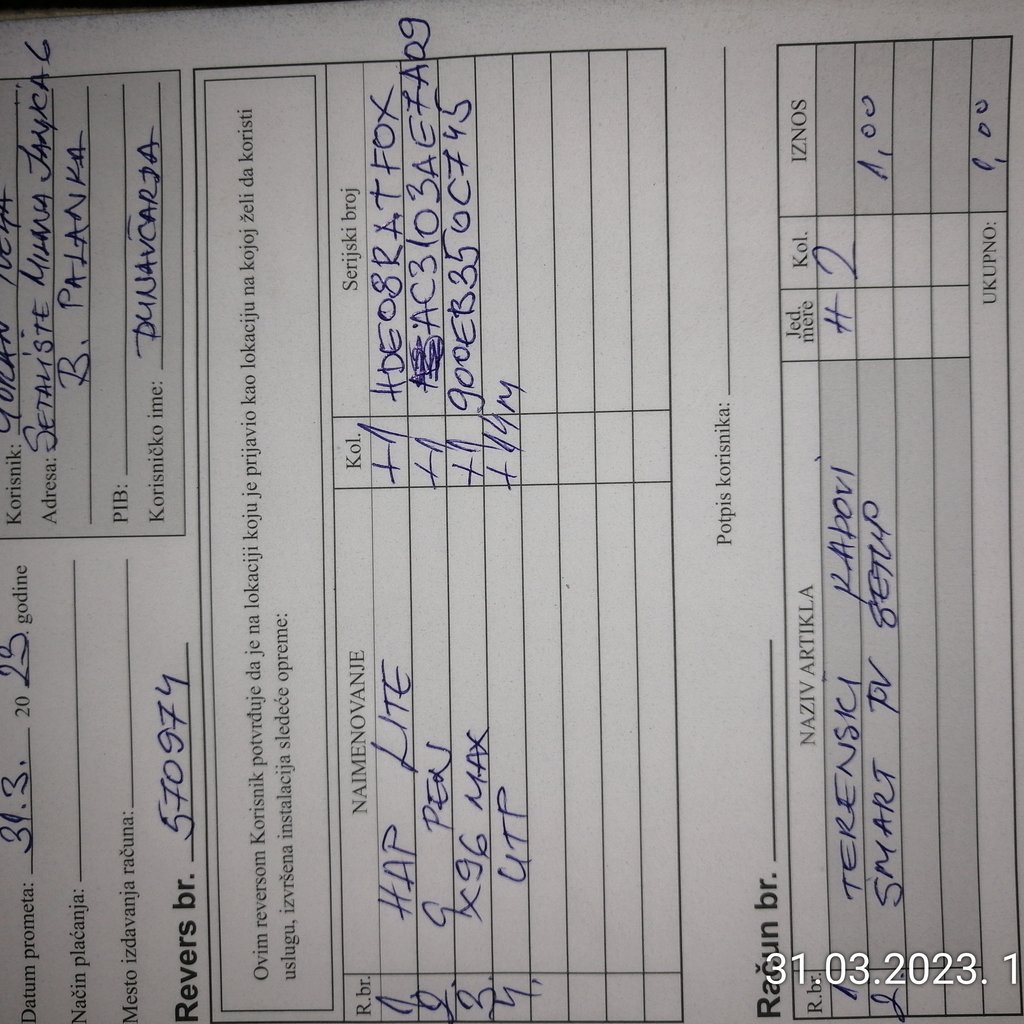 Datum prometa: 31.3. 20 23. godine
Način plaćanja:
Mesto izdavanja računa:
Korisnik: GORAN
Adresa: ŠETALIŠTE MIHALA
B. PALANKA
PIB:
Korisničko ime: DUNAVČARDA
Revers br. 570974
Ovim reversom Korisnik potvrđuje da je na lokaciji koju je prijavio kao lokaciju na kojoj želi da koristi
uslugu, izvršena instalacija sledeće opreme:
R.br. NAIMENOVANJE Kol. Serijski broj
1 HAP LITE +1 HDE08RATFOX
2. G PEN +1 AC3103AE7AD9
3. X96 MAX +1 900EB350C745
4. UTP +14M
Potpis korisnika:
Račun br.
R.br. NAZIV ARTIKLA Jed. mere Kol. IZNOS
1 TERENSKI RADOVI H 2
2. SMART TV SETUP 1,00
UKUPNO: 1,00
31.03.2023. 1